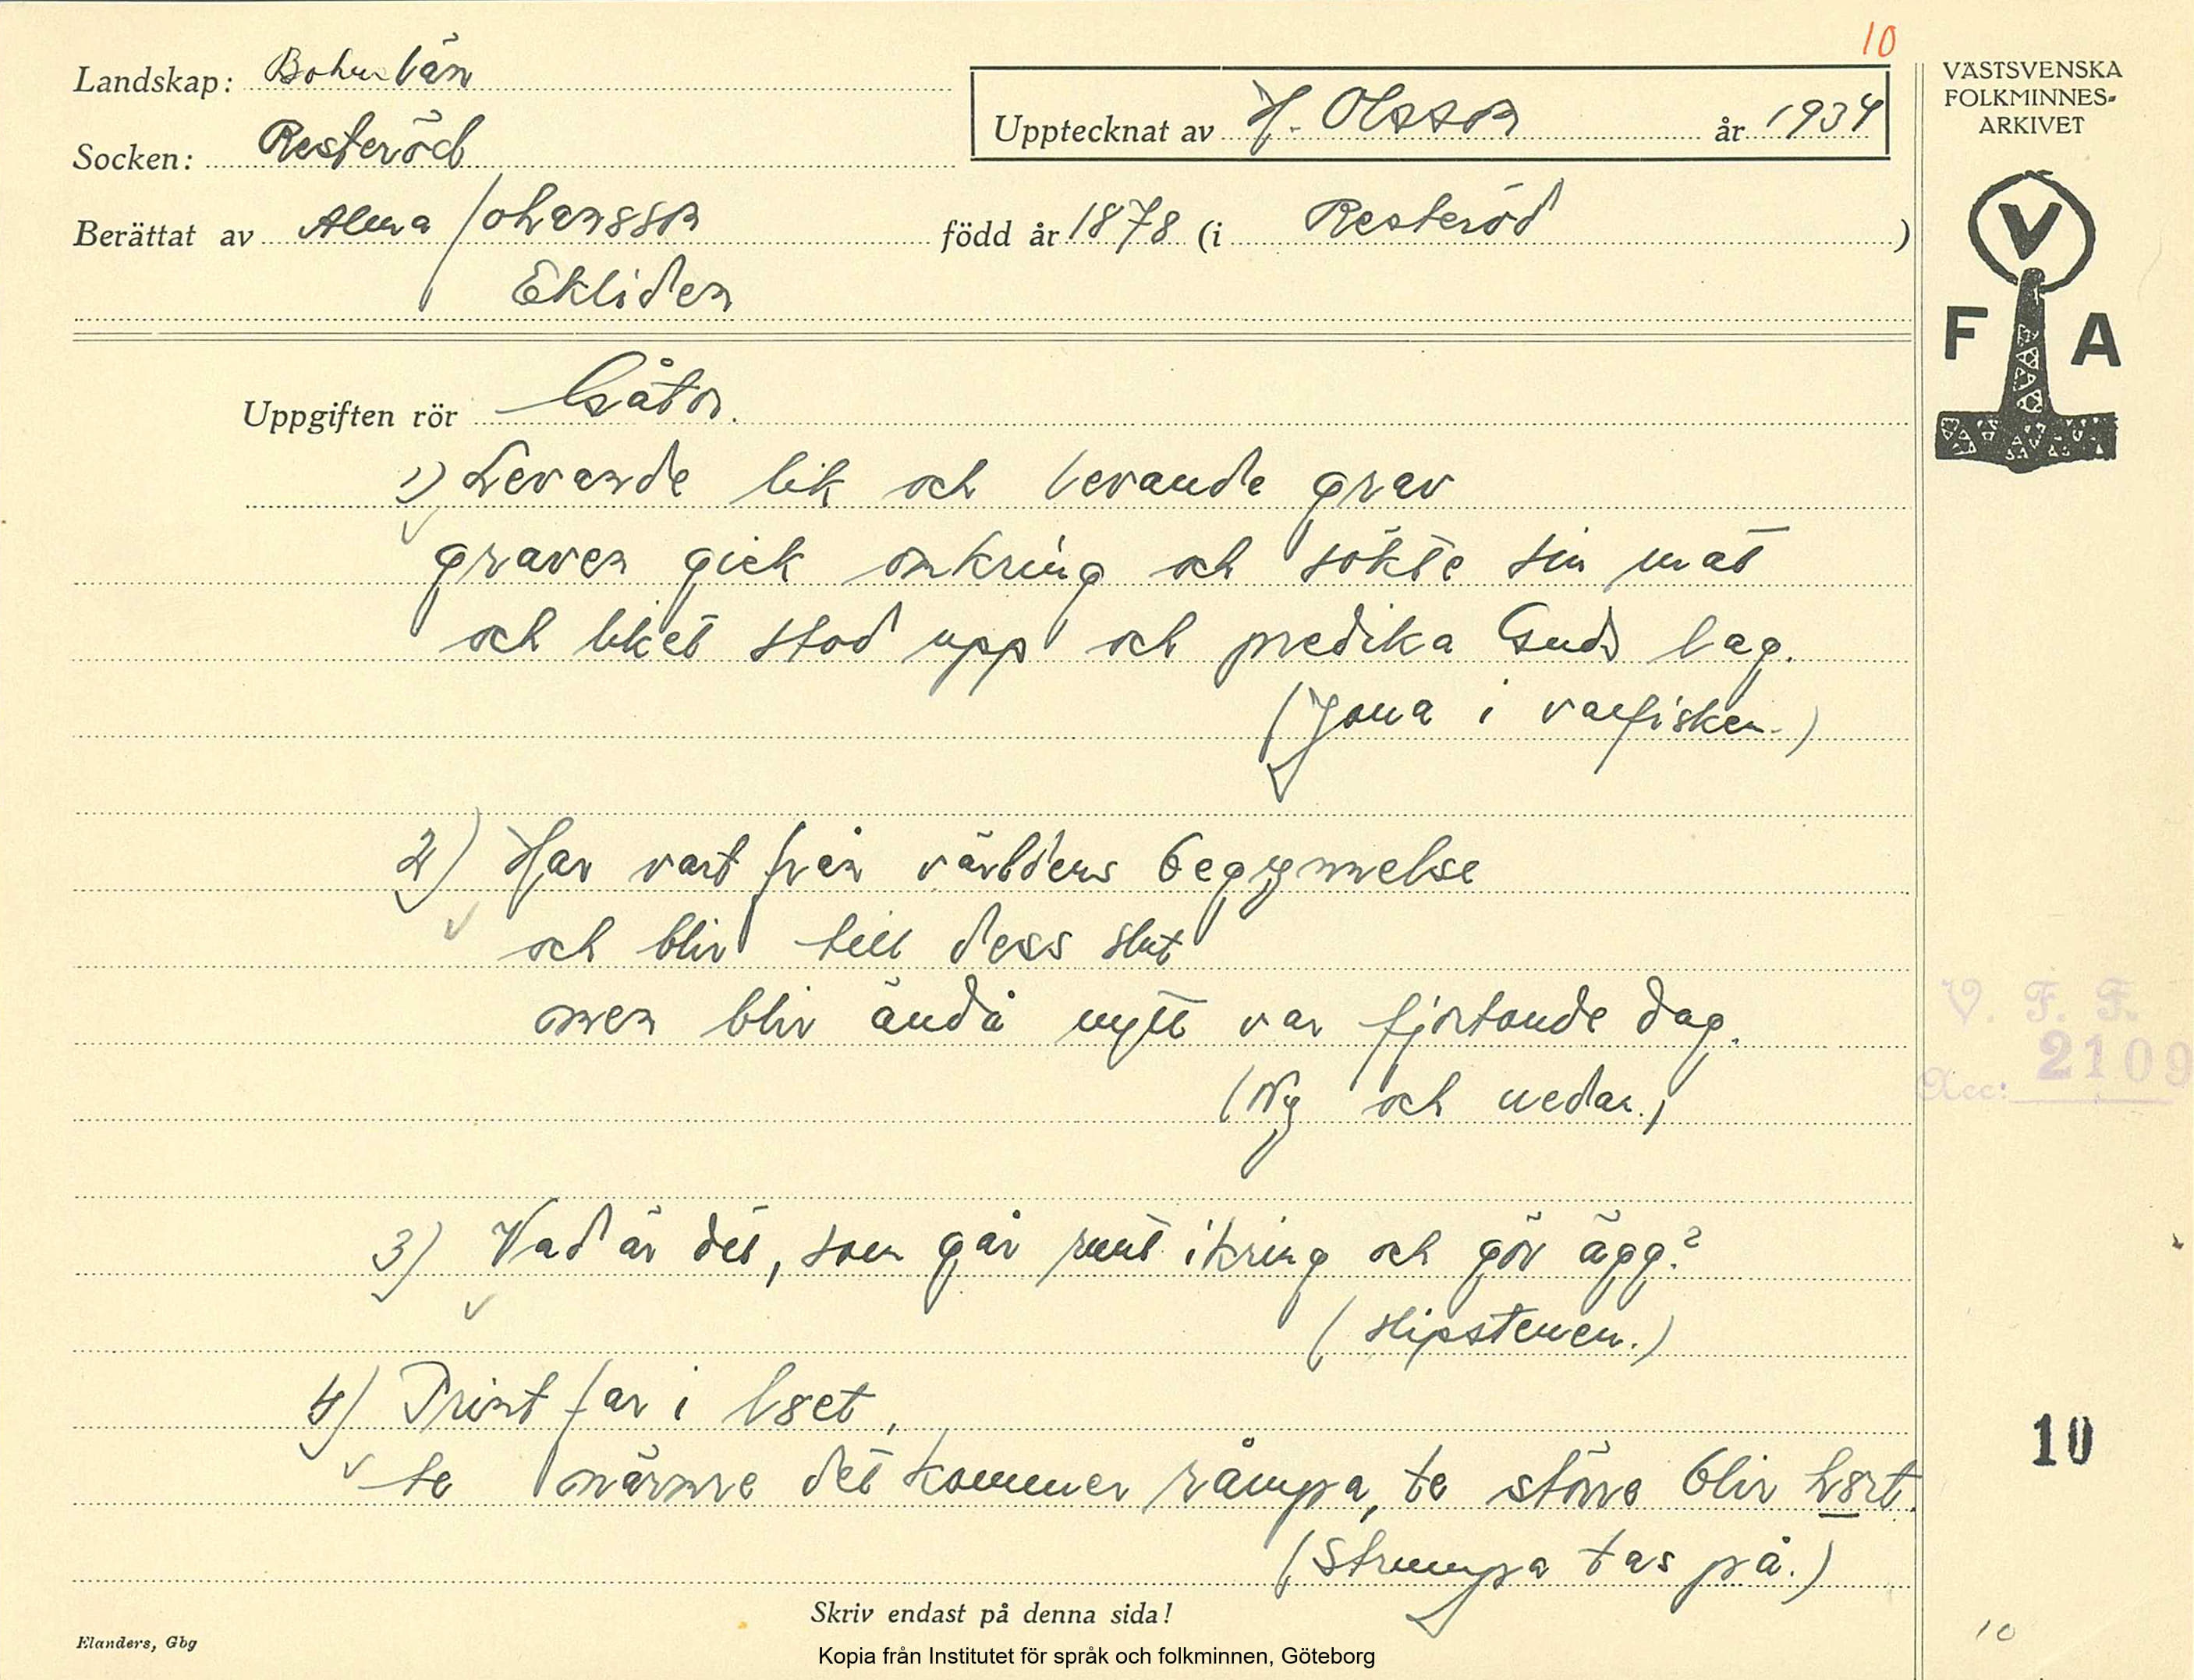 10
Landskap: Bohuslän
Upptecknat av H. Olsson år 1934
Socken: Resteröd
Berättat av Alma Johansson född år 1878 (i Resteröd)
Ekliden
VÄSTSVENSKA
FOLKMINNES-
ARKIVET
V
F A
Uppgiften rör Gåtor.
1) Levande lik och levande grav
graven gick omkring och sökte sin mat
och liket stod upp och predika Guds lag.
(Jona i valfisken.)
2) Har vart från världens begynnelse
och blir till dess slut
men blir ändå nytt var fjortonde dag.
(Ny och nedan.)
3) Vad är det, som går runt ikring och gör ägg?
(Slipstenen.)
4) Trint far i
te närmre det kommer råmpa, te större blir
(Strumpa tas på.)
V. F. F.
Acc: 2109
10
Skriv endast på denna sida!
Elanders, Gbg
10
Kopia från Institutet för språk och folkminnen, Göteborg